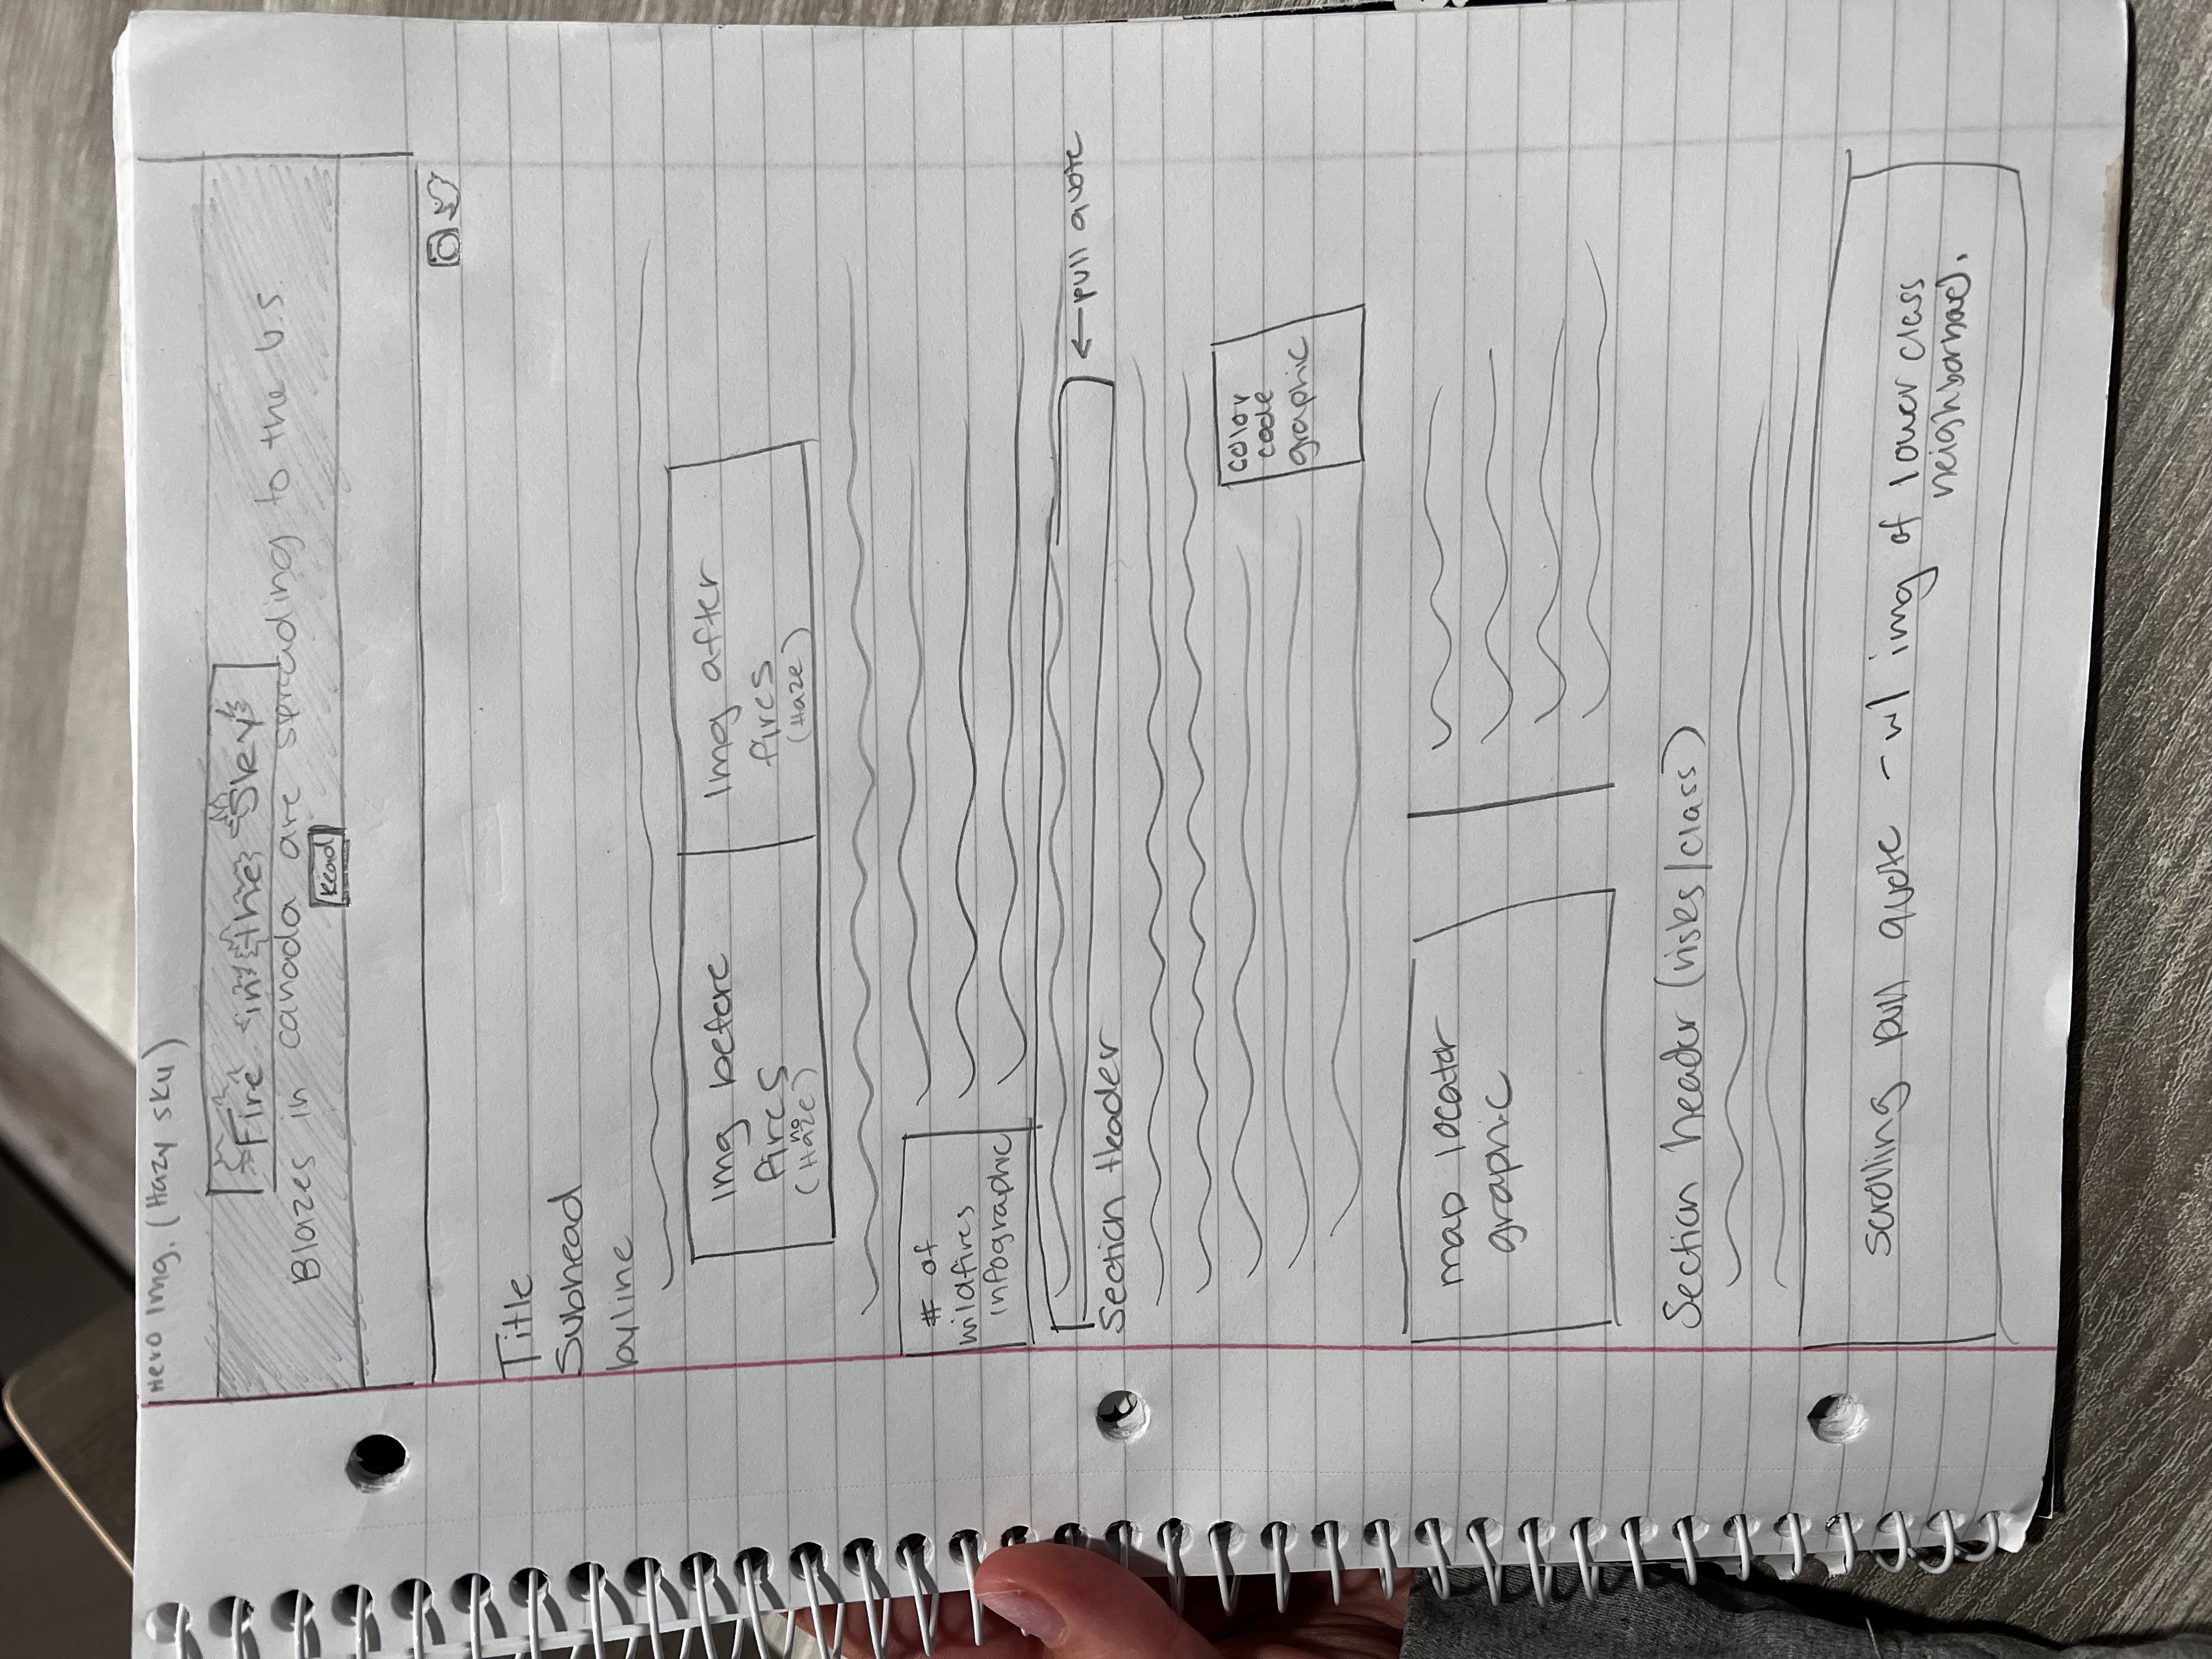 Hero Img. (Hazy sky)
Fire in the Sky
Blazes in canada are spreading to the U.S.
Read
Title
Subhead
byline
Img before
fires
(no Haze)
Img after
fires
(Haze)
# of
wildfires
infographic
← pull quote
Section Header
color
code
graphic
map locator
graphic
Section header (risks/class)
scrolling pull quote - w/ img of lower class
neighborhood.